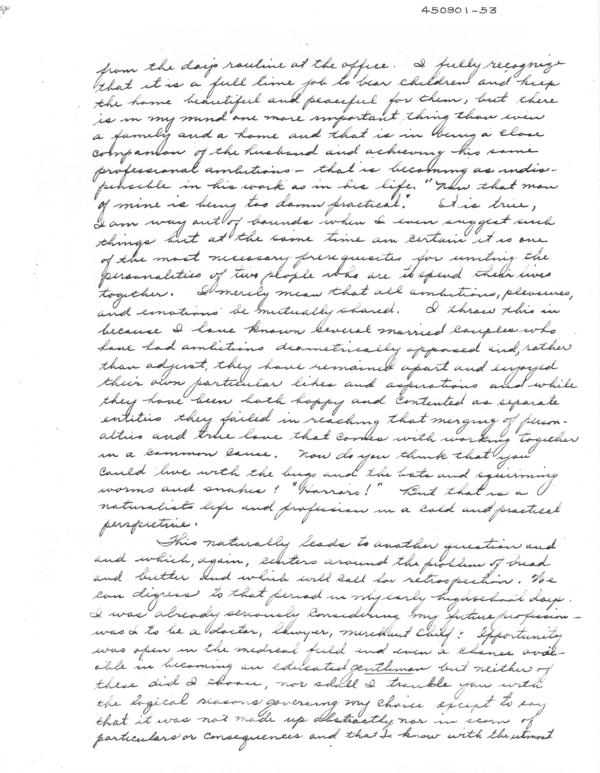 450901-53
from the day's routine at the office. I fully recognize
that it is a full time job to bear children and keep
the home beautiful and peaceful for them, but there
is in my mind one more important thing than even
a family and a home and that is in being a close
companion of the husband and achieving his same
professional ambitions - that is becoming as indis-
pensible in his work as in his life. "Now that man
of mine is being too damn practical." It is true,
I am way out of bounds when I even suggest such
things but at the same time am certain it is one
of the most necessary prerequisites for uniting the
personalities of two people who are to spend their lives
together. I merely mean that all ambitions, pleasures,
and emotions be mutually shared. I throw this in
because I have known several married couples who
have had ambitions diametrically opposed and, rather
than adjust, they have remained apart and enjoyed
their own particular likes and aspirations and while
they have been both happy and contented as separate
entities they failed in reaching that merging of person-
alties and true love that comes with working together
in a common cause. Now do you think that you
could live with the bugs and the bats and squirming
worms and snakes? "Horrors!" But that is a
naturalists life and profession in a cold and practical
perspective.
This naturally leads to another question and
and which, again, centers around the problem of bread
and butter and which will call for retrospection. We
can digress to that period in my early highschool days.
I was already seriously considering my future profession -
was I to be a doctor, lawyer, merchant chief? Opportunity
was open in the medical field and even a chance avail-
able in becoming an educated gentleman but neither of
these did I choose, nor shall I trouble you with
the logical reasons governing my choice except to say
that it was not made up abstractly nor in scorn of
particulars or consequences and that I know with the utmost